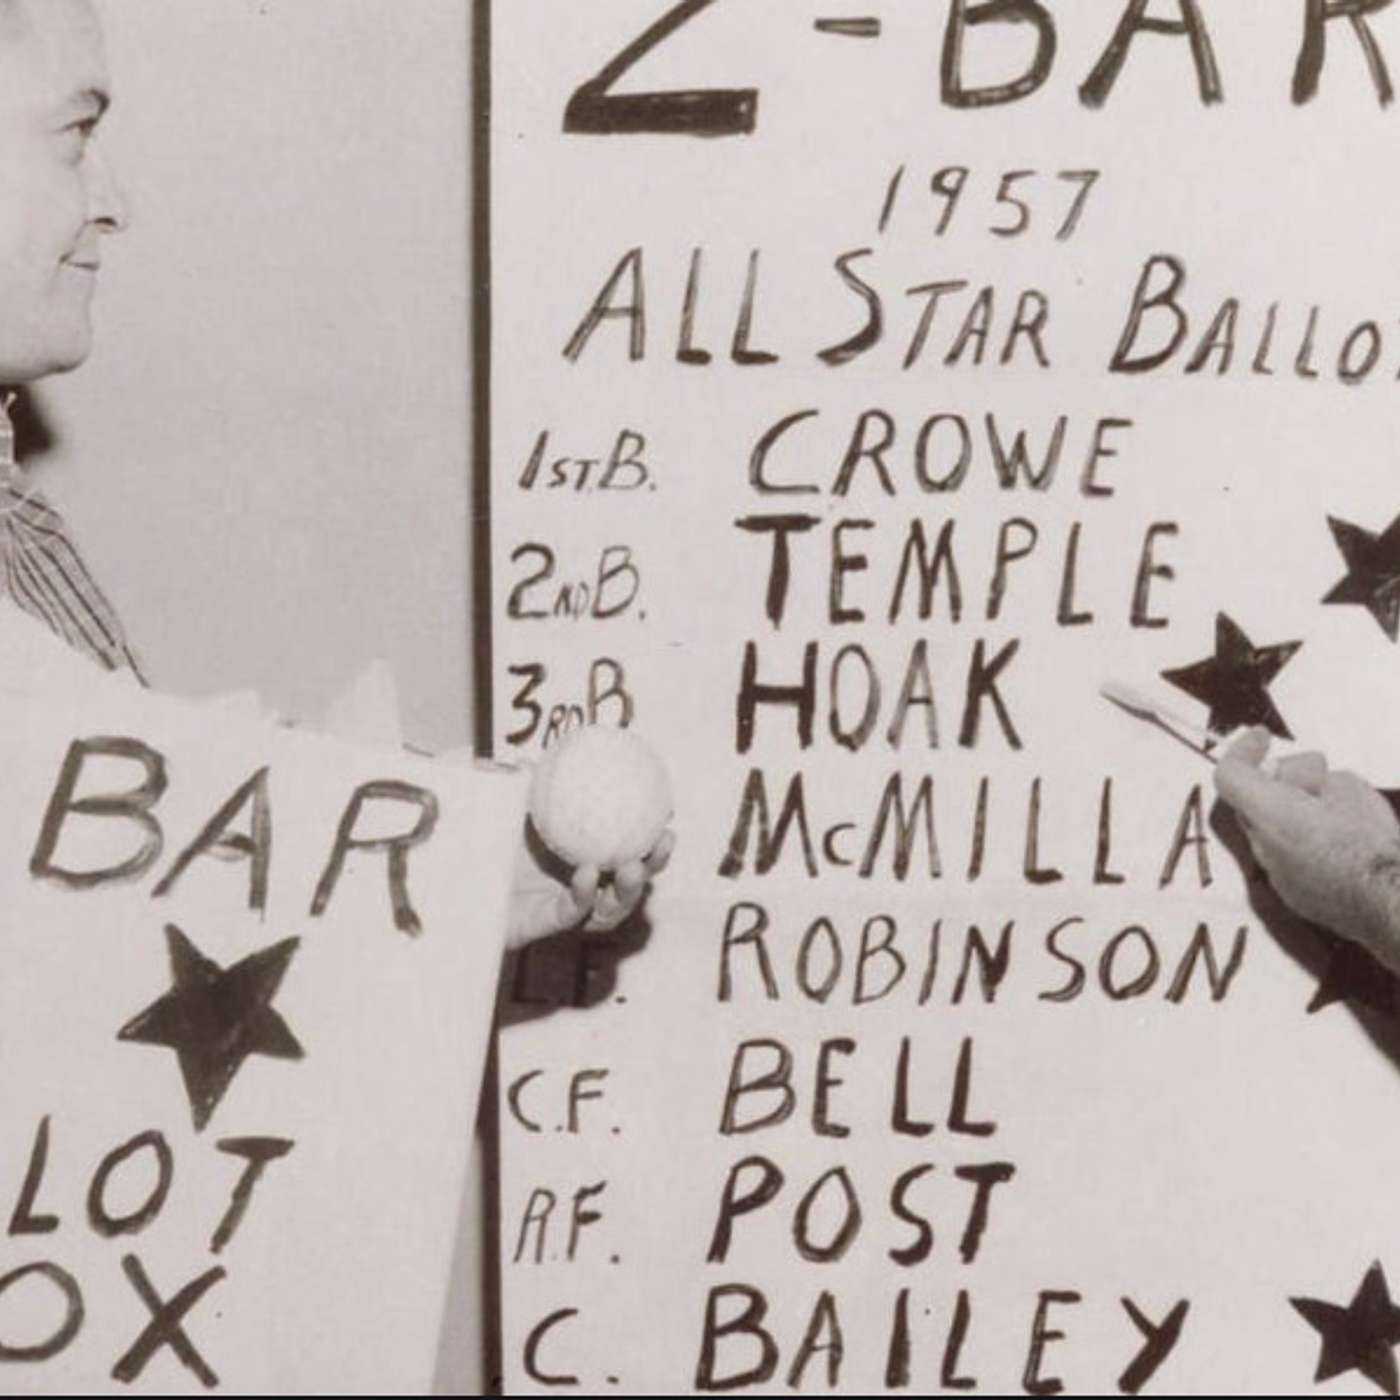 Z-BAR
1957
ALL STAR BALLO
1ST.B. CROWE
2NDB. TEMPLE
3RDB HOAK
McMILLA
ROBINSON
C.F. BELL
R.F. POST
C. BAILEY
BAR
LOT
OX